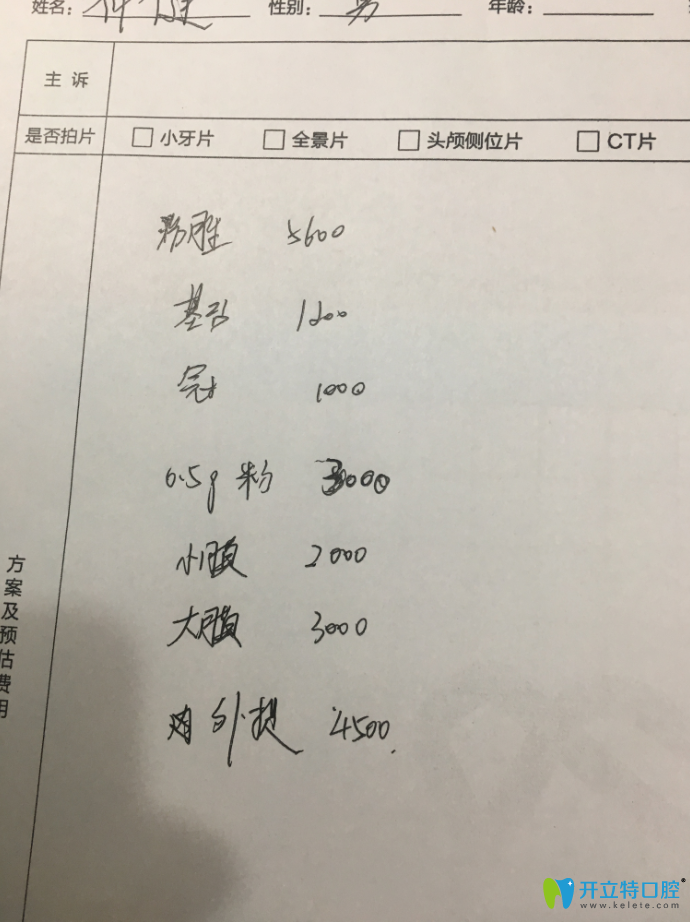 姓名: 性别: 男 年龄:
主诉
是否拍片 小牙片 全景片 头颅侧位片 CT片
方案及预估费用
5600
基台 1200
冠 1000
0.5g 粉 3000
小膜 2000
大膜 3000
外提 4500
开立特口腔
www.kelete.com